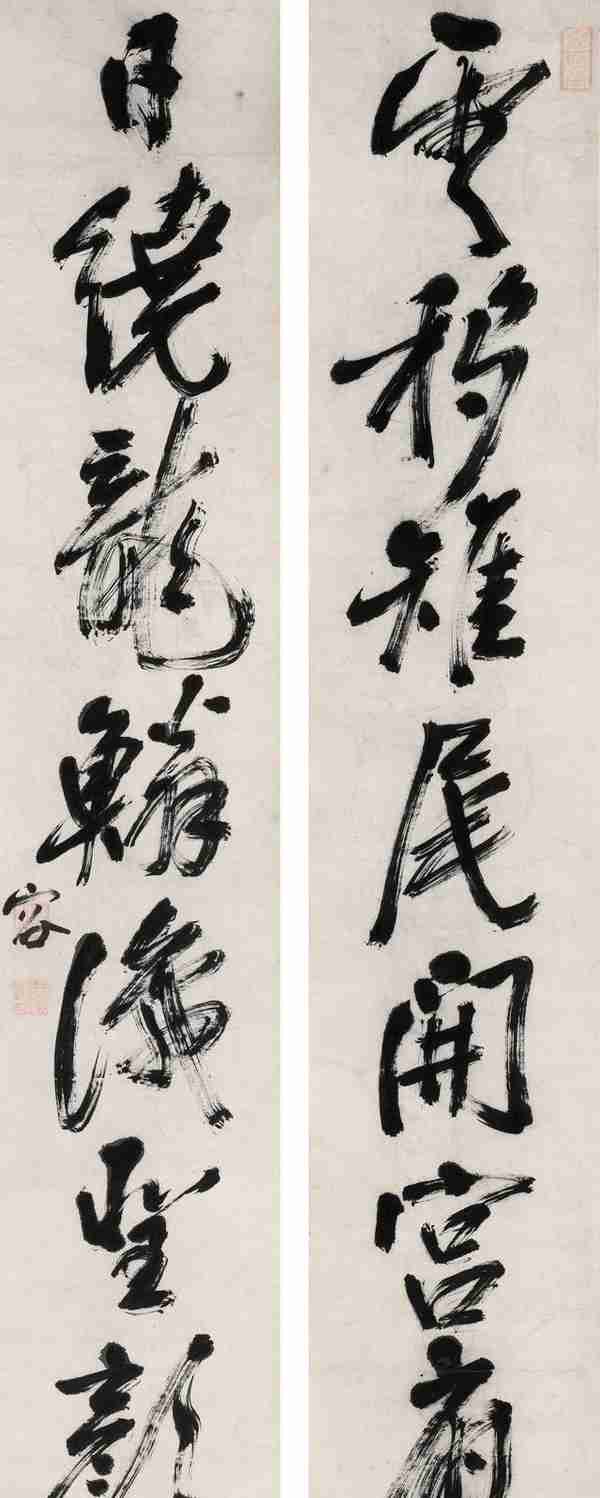 雲移雉尾開宮扇
日繞龍鱗識聖顏